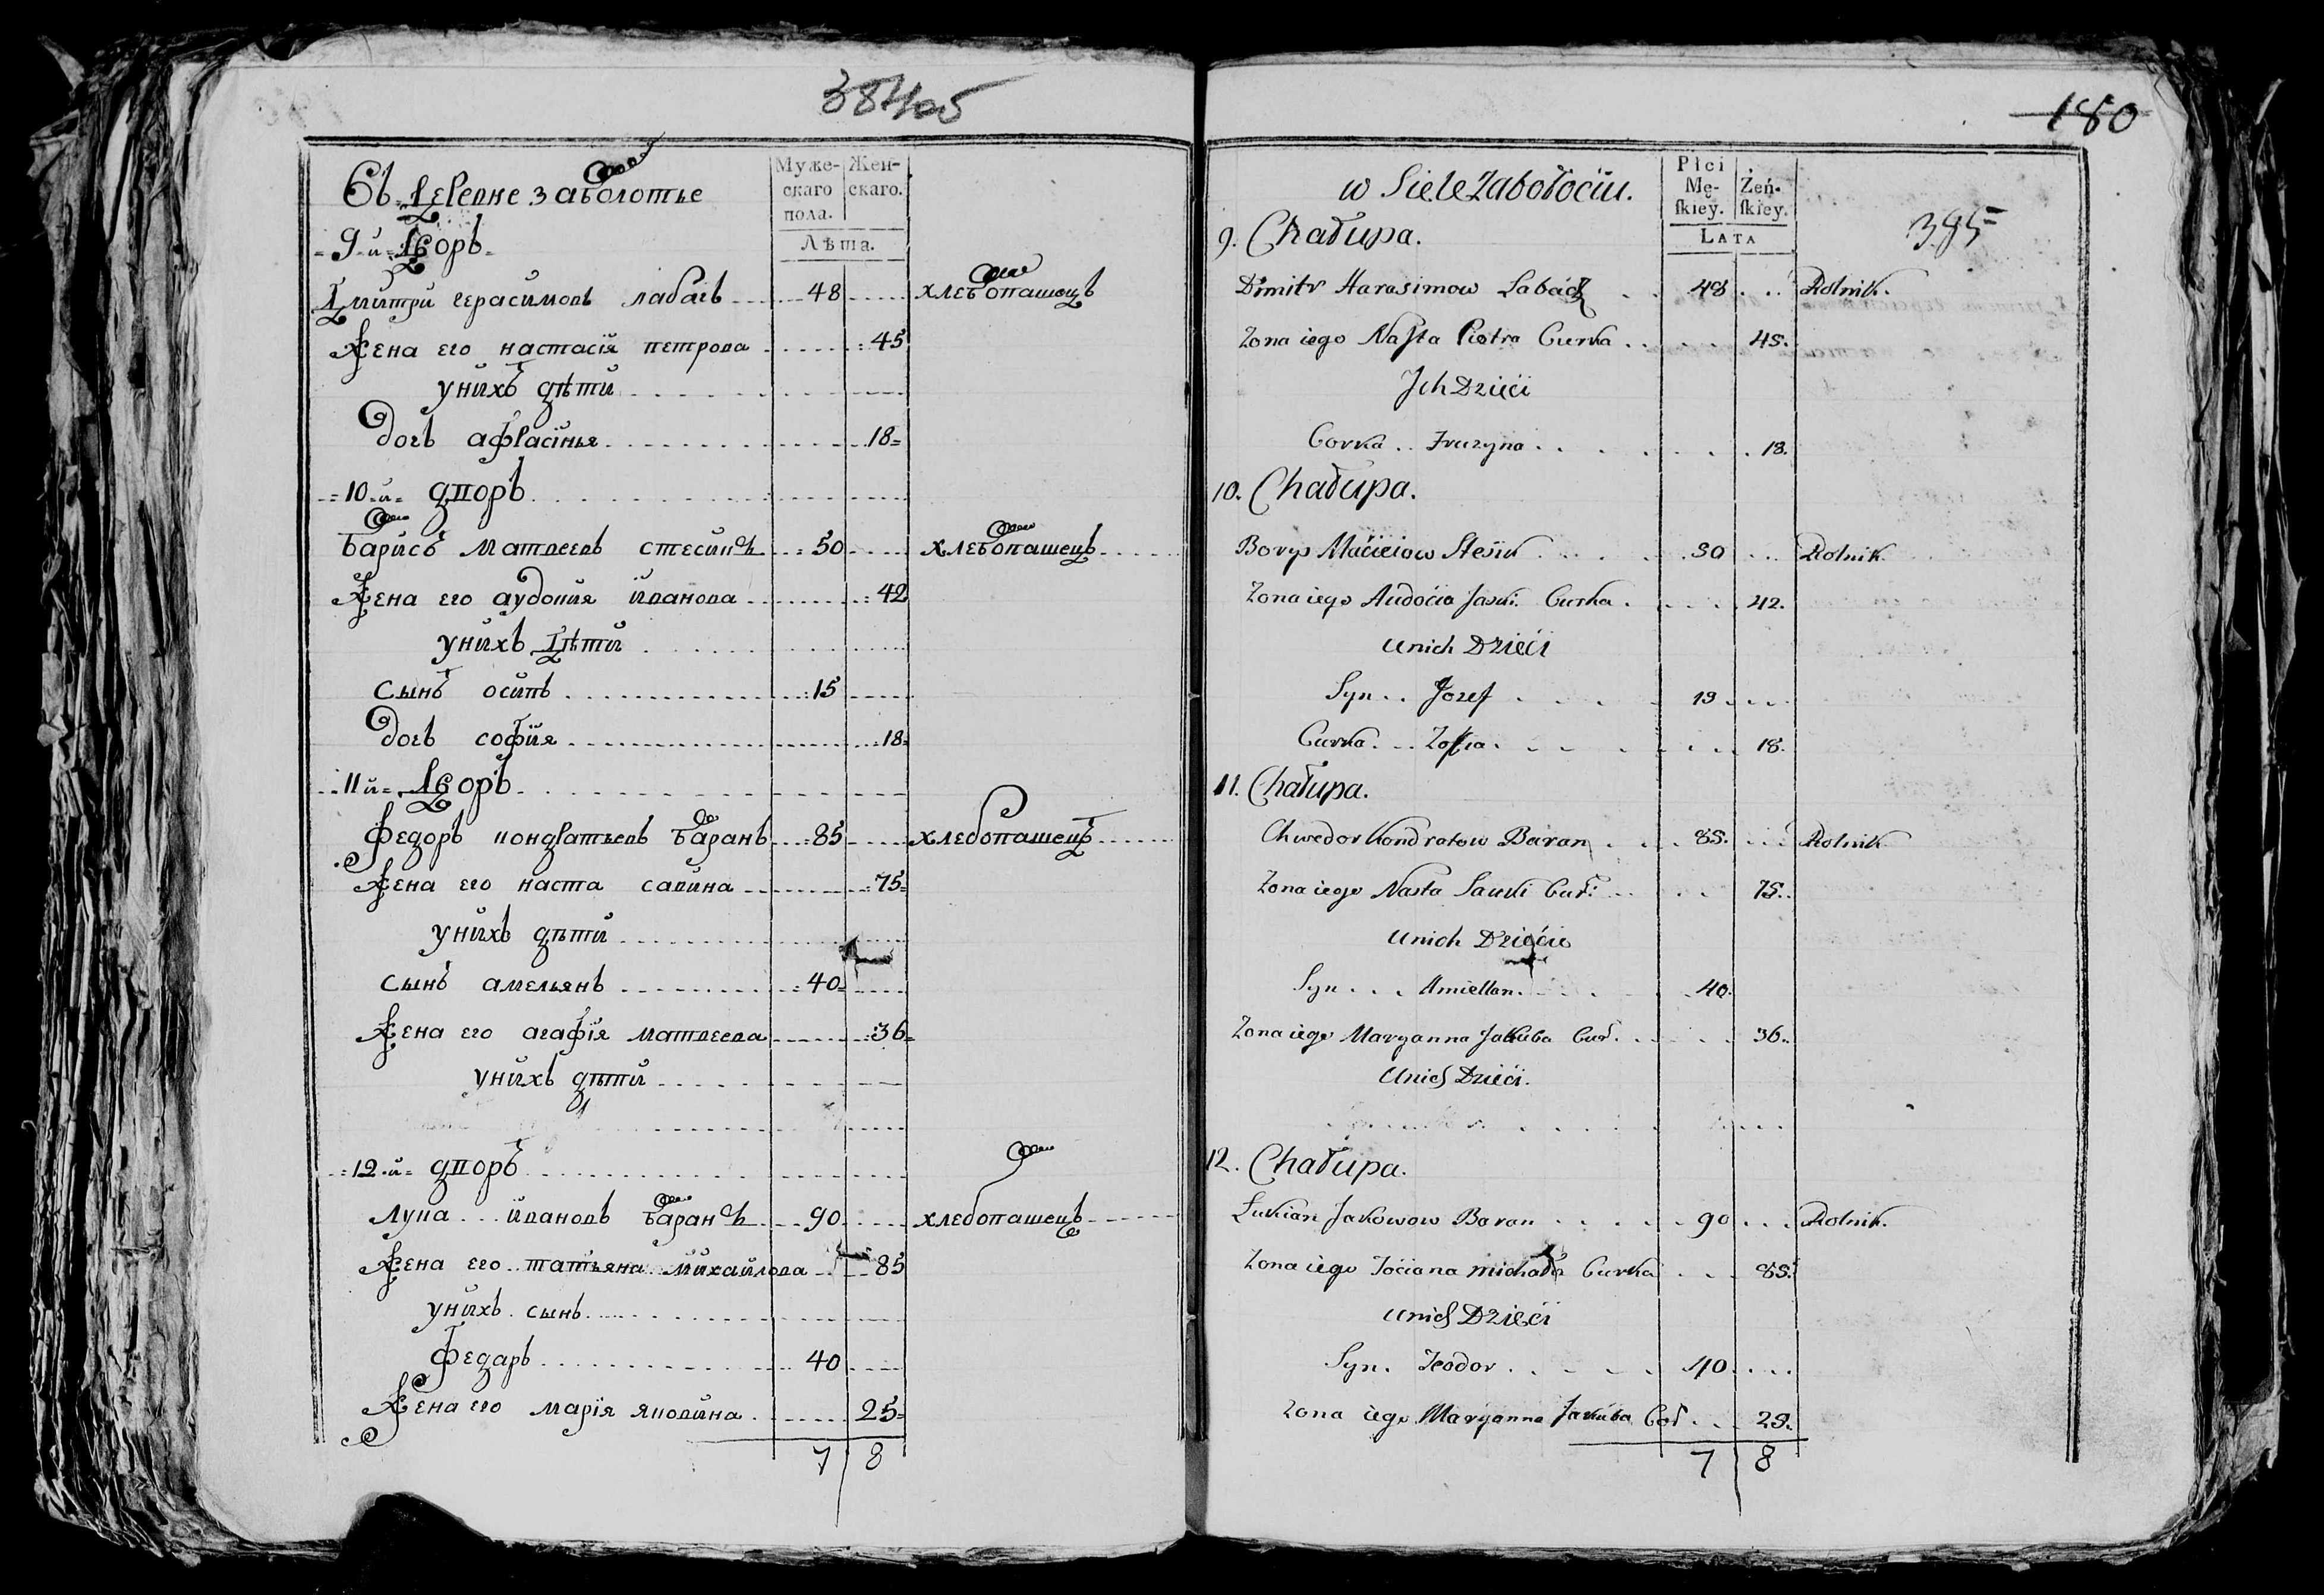 384об
Въ деревне заболотье
Муже-
скаго
пола.
Жен-
скаго.
Лѣта.
9 й дворъ
Дмитри герасимовъ лабачь 48 хлебопашецъ
Жена его настасія петрова 45
унихъ дѣти
дочь афрасінья 18
10 й дворъ
барисъ матвеевъ стесикъ 50 хлебопашецъ
Жена его аудотия иванова 42
унихъ дѣти
сынъ осипъ 15
дочь софия 18
11 й дворъ
федоръ кондратьевъ баранъ 85 хлебопашецъ
Жена его наста савина 75
унихъ дѣти
сынъ амельянъ 40
Жена его агафія матвеева 36
унихъ дѣти
12 й дворъ
лука ивановъ баранъ 90 хлебопашецъ
Жена его татьяна михайлова 85
унихъ сынъ
федаръ 40
Жена его марія яковина 25
7 8
180
w Siele Zabołociu.
Płci
Mę-
skiey.
Żeń-
skiey.
Lata
385
9. Chałupa.
Dmitr Harasimow Labacz 48 Rolnik.
Zona iego Nasta Piotra Curka 45.
Jch Dzieci
Corka Fruzyna 18.
10. Chałupa.
Borys Maciejow Stesik 50 Rolnik
Zona iego Audocia Jaski Curka 42.
unich Dzieci
Syn Jozef 15
Curka Zofia 18.
11. Chałupa.
Chwedor Kondratow Baran 85. Rolnik
Zona iego Nasta Sawki Cur: 75.
unich Dziecie
Syn Amiellan 40.
Zona iego Maryanna Jakuba Cur. 36.
Unich Dzieci.
12. Chałupa.
Łukian Jakowow Baran 90 Rolnik.
Zona iego Tociana michała Curka 85.
unich Dzieci
Syn. Teodor 40
Zona iego Maryanna Jakuba Cor 25.
7 8